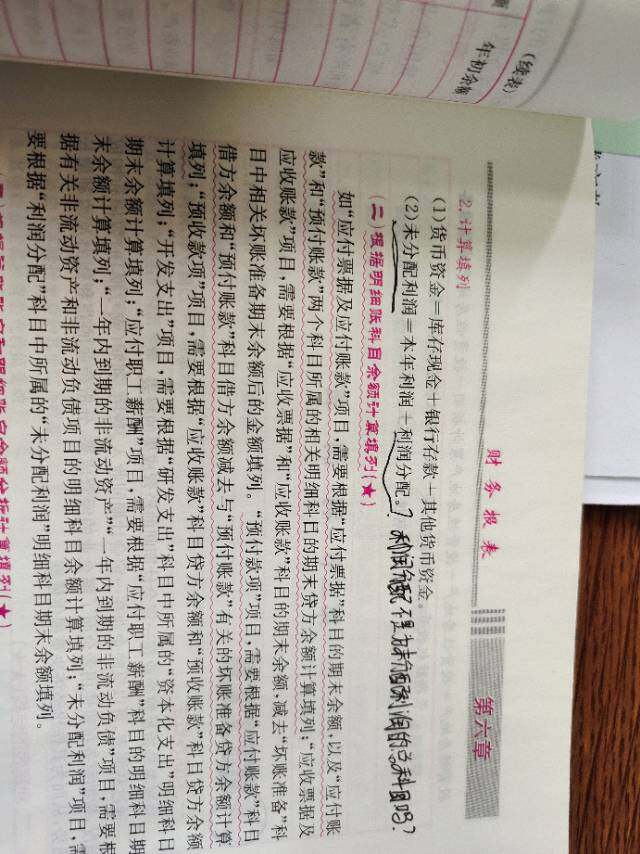 (续表)
年初余额
财务报表
第六章
2. 计算填列
(1)货币资金=库存现金+银行存款+其他货币资金。
(2)未分配利润=本年利润+利润分配。？利润分配不是为未分配利润的总科目吗？
(二)根据明细账科目余额计算填列(★)
如“应付票据及应付账款”项目,需要根据“应付票据”科目的期末余额,以及“应付账
款”和“预付账款”两个科目所属的相关明细科目的期末贷方余额计算填列;“应收票据及
应收账款”项目,需要根据“应收票据”和“应收账款”科目的期末余额,减去“坏账准备”科
目中相关坏账准备期末余额后的金额填列。“预付款项”项目,需要根据“应付账款”科目
借方余额和“预付账款”科目借方余额减去与“预付账款”有关的坏账准备贷方余额计算
填列;“预收款项”项目,需要根据“应收账款”科目贷方余额和“预收账款”科目贷方余额
计算填列;“开发支出”项目,需要根据“研发支出”科目中所属的“资本化支出”明细科目
期末余额计算填列;“应付职工薪酬”项目,需要根据“应付职工薪酬”科目的明细科目期
末余额计算填列;“一年内到期的非流动资产”“一年内到期的非流动负债”项目,需要根
据有关非流动资产和非流动负债项目的明细科目余额计算填列;“未分配利润”项目,需
要根据“利润分配”科目中所属的“未分配利润”明细科目期末余额填列。